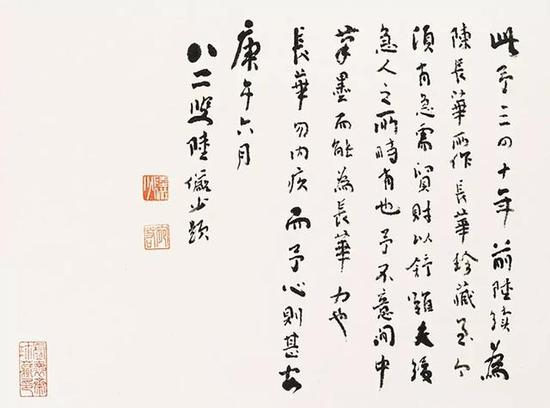 此予三四十年前陸續為
陳長華所作長華珍藏至今
頃有急需貿財以舒難夫緩
急人之所時有也予不意間中
筆墨而能為長華力也
長華勿內疚而予心則甚安
庚午六月
八二叟陸儼少題